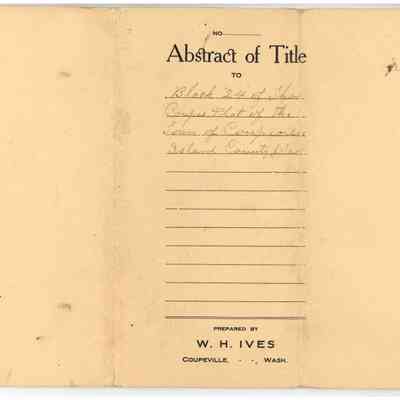 NO.
Abstract of Title
TO
Block 24 of The
Coupe's Plat of the
Town of Coupeville
Island County,
PREPARED BY
W. H. IVES
COUPEVILLE, - -, WASH.